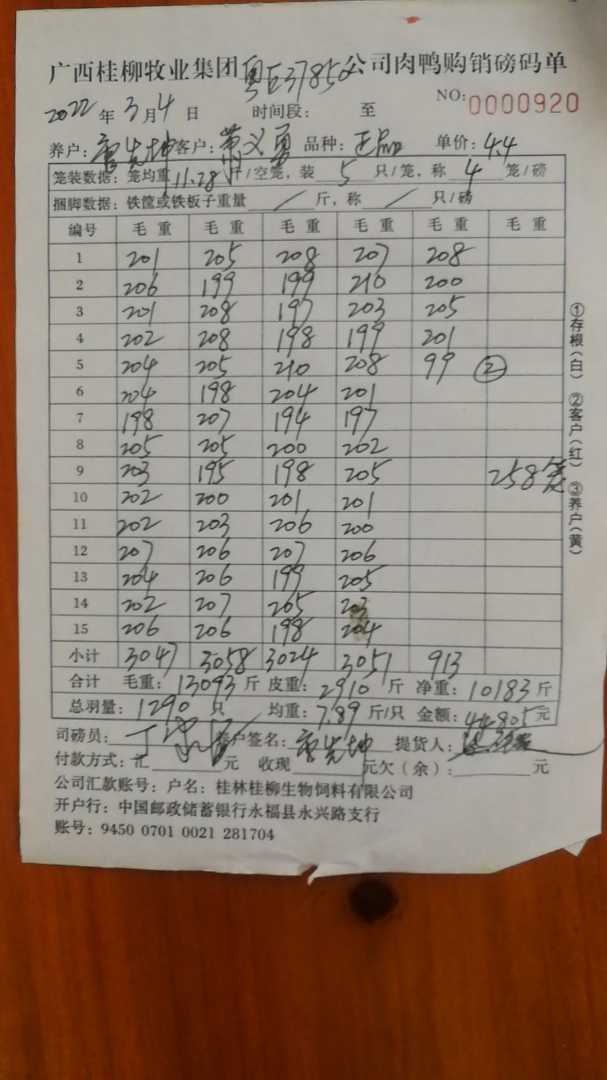 广西桂柳牧业集团粤E3785Q公司肉鸭购销磅码单
NO: 0000920
2022年3月4日 时间段： 至
养户： 客户： 义勇 品种：正品 单价：4.4
笼装数据：笼均重11.28斤/空笼，装5只/笼，称4笼/磅
捆脚数据：铁筐或铁板子重量/斤，称/只/磅
编号 毛重 毛重 毛重 毛重 毛重 毛重
1 201 205 208 207 208
2 206 199 199 210 200
3 201 208 197 203 205
4 202 208 198 199 201
5 204 205 210 208 99 ②
6 204 198 204 201
7 198 207 194 197
8 205 205 200 202
9 203 195 198 205 258笼
10 202 200 201 201
11 202 203 206 200
12 207 206 207 206
13 204 206 199 205
14 202 207 205 203
15 206 206 198 204
小计 3047 3058 3024 3051 913
合计 毛重：13093斤 皮重：2910斤 净重：10183斤
总羽量：1290只 均重：7.89斤/只 金额：44805元
司磅员： 养户签名： 提货人：
付款方式：汇 元 收现 元欠（余）： 元
公司汇款账号：户名：桂林桂柳生物饲料有限公司
开户行：中国邮政储蓄银行永福县永兴路支行
账号：9450 0701 0021 281704
①存根（白） ②客户（红） ③养户（黄）